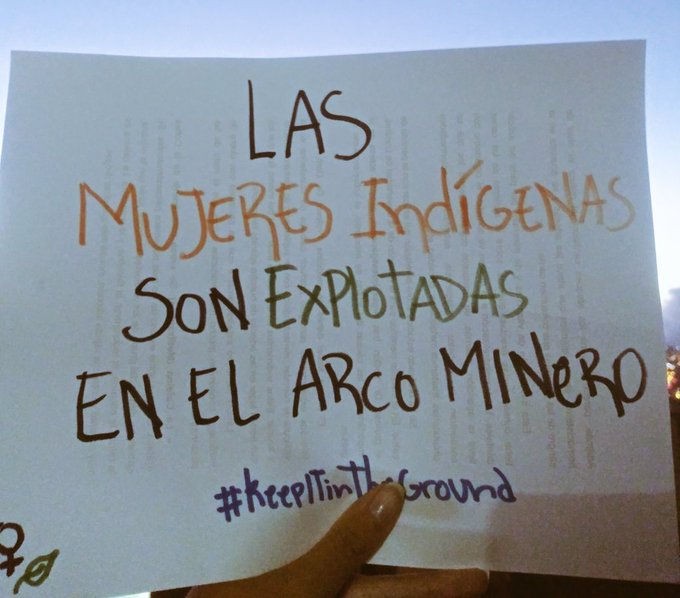 LAS
MUJERES IndíGENAS
SON ExPlotADAS
EN EL ARCO MINeRO
#KeepITintheGround